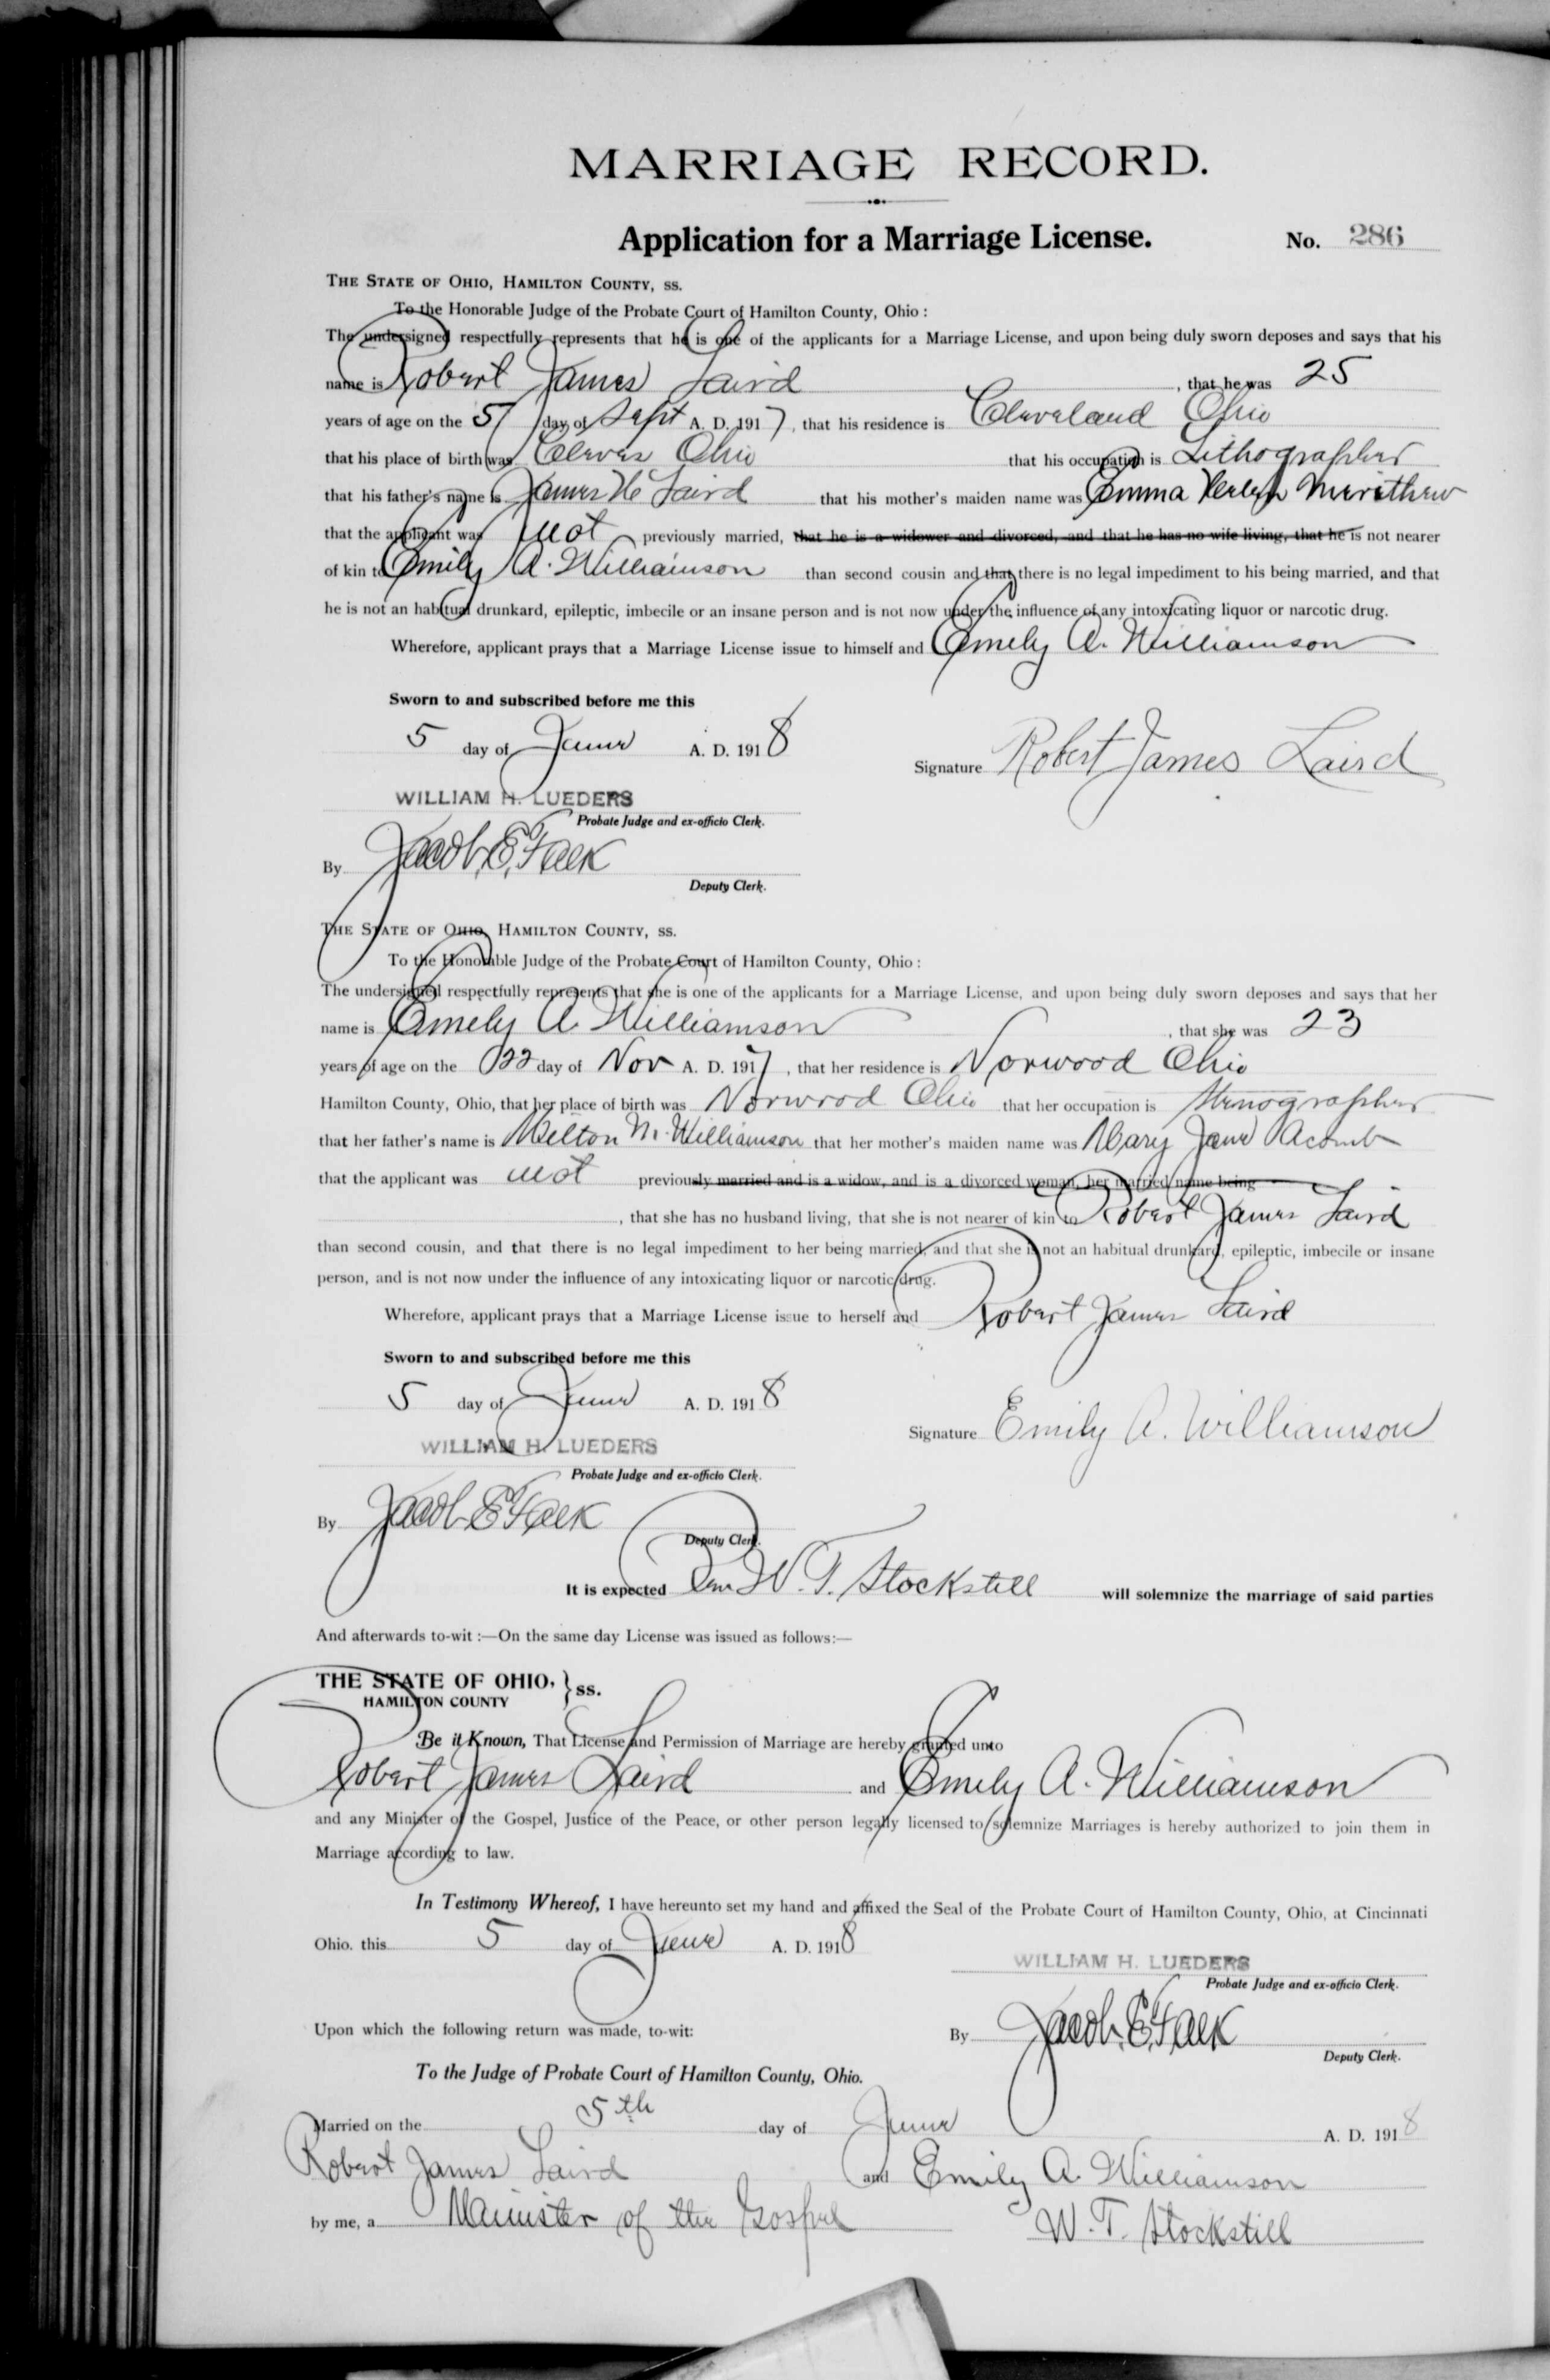 MARRIAGE RECORD.
Application for a Marriage License. No. 286
THE STATE OF OHIO, HAMILTON COUNTY, SS.
To the Honorable Judge of the Probate Court of Hamilton County, Ohio:
The undersigned respectfully represents that he is one of the applicants for a Marriage License, and upon being duly sworn deposes and says that his
name is Robert James Laird, that he was 25
years of age on the 5 day of Sept A. D. 1917, that his residence is Cleveland Ohio
that his place of birth was Cleves Ohio that his occupation is Lithographer
that his father's name is James H Laird that his mother's maiden name was Emma Merithew
that the applicant was not previously married, that he is a widower and divorced, and that he has no wife living, that he is not nearer
of kin to Emily A. Williamson than second cousin and that there is no legal impediment to his being married, and that
he is not an habitual drunkard, epileptic, imbecile or an insane person and is not now under the influence of any intoxicating liquor or narcotic drug.
Wherefore, applicant prays that a Marriage License issue to himself and Emely A. Williamson
Sworn to and subscribed before me this
5 day of June A. D. 1918
Signature Robert James Laird
WILLIAM H. LUEDERS
Probate Judge and ex-officio Clerk.
By Jacob E. Falk
Deputy Clerk.
THE STATE OF OHIO, HAMILTON COUNTY, SS.
To the Honorable Judge of the Probate Court of Hamilton County, Ohio:
The undersigned respectfully represents that she is one of the applicants for a Marriage License, and upon being duly sworn deposes and says that her
name is Emely A. Williamson, that she was 23
years of age on the 22 day of Nov A. D. 1917, that her residence is Norwood Ohio
Hamilton County, Ohio, that her place of birth was Norwood Ohio that her occupation is Stenographer
that her father's name is Melton M. Williamson that her mother's maiden name was Mary Jane Acomb
that the applicant was not previously married and is a widow, and is a divorced woman, her married name being
, that she has no husband living, that she is not nearer of kin to Robert James Laird
than second cousin, and that there is no legal impediment to her being married, and that she is not an habitual drunkard, epileptic, imbecile or insane
person, and is not now under the influence of any intoxicating liquor or narcotic drug.
Wherefore, applicant prays that a Marriage License issue to herself and Robert James Laird
Sworn to and subscribed before me this
5 day of June A. D. 1918
Signature Emily A. Williamson
WILLIAM H. LUEDERS
Probate Judge and ex-officio Clerk.
By Jacob E Falk
Deputy Clerk.
It is expected Rev W. T. Stockstill will solemnize the marriage of said parties
And afterwards to-wit:—On the same day License was issued as follows:—
THE STATE OF OHIO, } ss.
HAMILTON COUNTY
Be it Known, That License and Permission of Marriage are hereby granted unto
Robert James Laird and Emely A. Williamson
and any Minister of the Gospel, Justice of the Peace, or other person legally licensed to solemnize Marriages is hereby authorized to join them in
Marriage according to law.
In Testimony Whereof, I have hereunto set my hand and affixed the Seal of the Probate Court of Hamilton County, Ohio, at Cincinnati
Ohio. this 5 day of June A. D. 1918
WILLIAM H. LUEDERS
Probate Judge and ex-officio Clerk.
Upon which the following return was made, to-wit:
By Jacob E. Falk
Deputy Clerk.
To the Judge of Probate Court of Hamilton County, Ohio.
Married on the 5th day of June A. D. 1918
Robert James Laird and Emily A. Williamson
by me, a Minister of the Gospel W. T. Stockstill